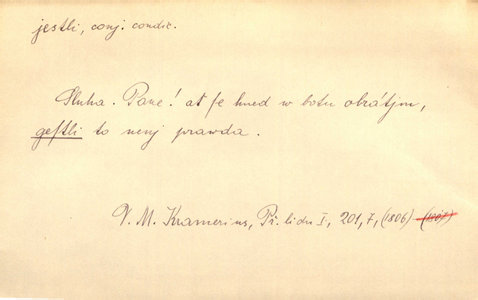 jestli, conj. condic.
Sluha. Pane! ať se hned w botu obrátjm,
gestli to nenj prawda.
V. M. Kramerius, Př. lidu I, 201, 7, (1806) (1807)